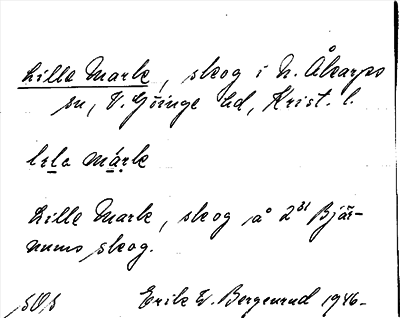 Lilla Mark, skog i N. Åkarps
sn, V. Göinge hd, Krist. l.
lɩla márk
Lille Mark, skog å 2 sl Bjär-
nums skog.
Erik W. Bergenrud 1946-